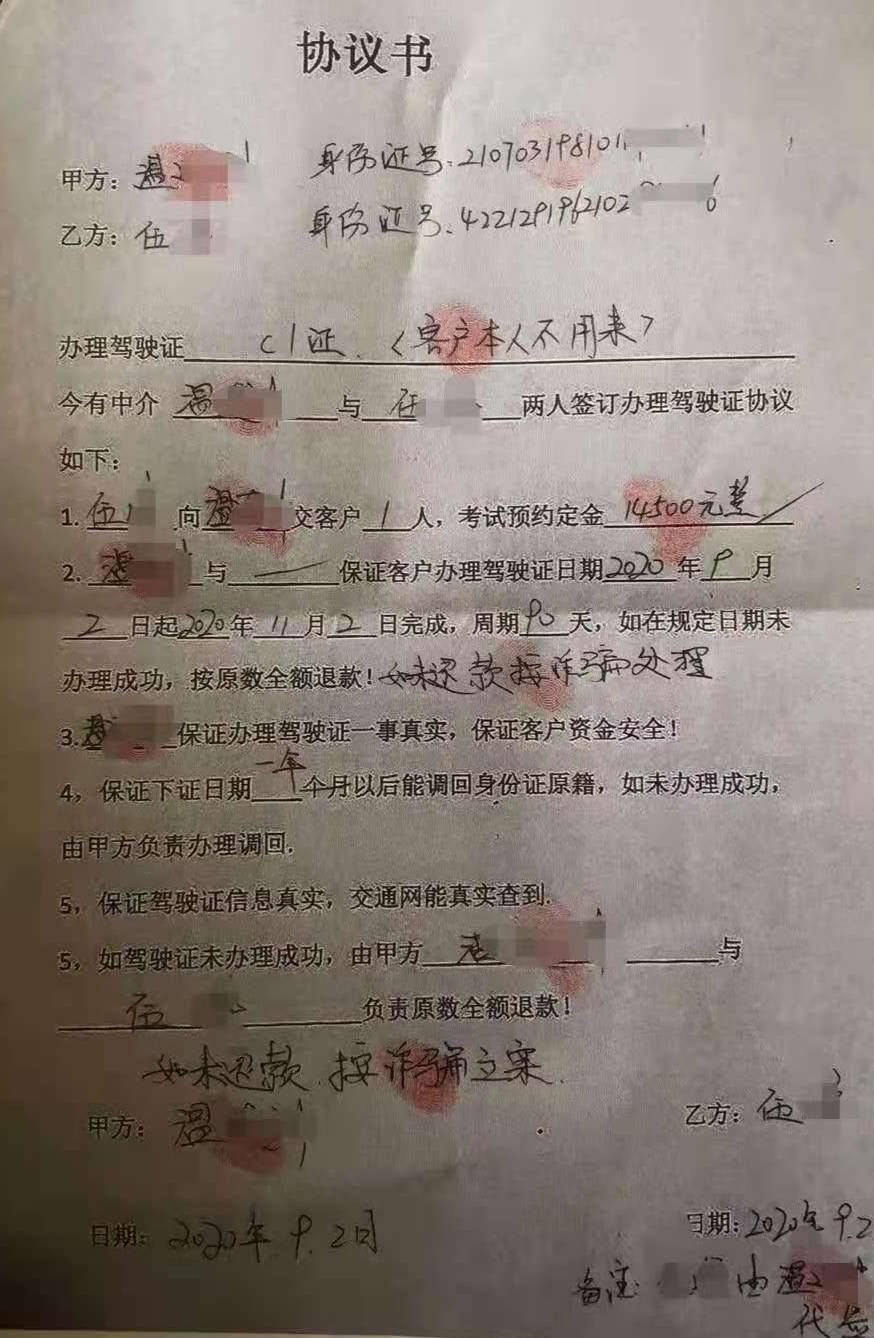 协议书
甲方：温 身份证号：210703198101
乙方：伍 身份证号：4221291962102 6
办理驾驶证 C1证.〈客户本人不用来〉
今有中介 温 与 伍 两人签订办理驾驶证协议
如下：
1. 伍 向 温 交客户 1 人，考试预约定金 14500元整
2. 温 与 保证客户办理驾驶证日期2020年9月
2日起2020年11月2日完成，周期90天，如在规定日期未
办理成功，按原数全额退款！如未还款按诈骗处理
3. 温 保证办理驾驶证一事真实，保证客户资金安全！
一年
4，保证下证日期 个月以后能调回身份证原籍，如未办理成功，
由甲方负责办理调回.
5，保证驾驶证信息真实，交通网能真实查到.
5，如驾驶证未办理成功，由甲方 温 与
伍 负责原数全额退款！
如未还款.按诈骗立案.
甲方：温 乙方：伍
日期：2020年.9.2日 日期：2020年9.2
备注： 由温
代签